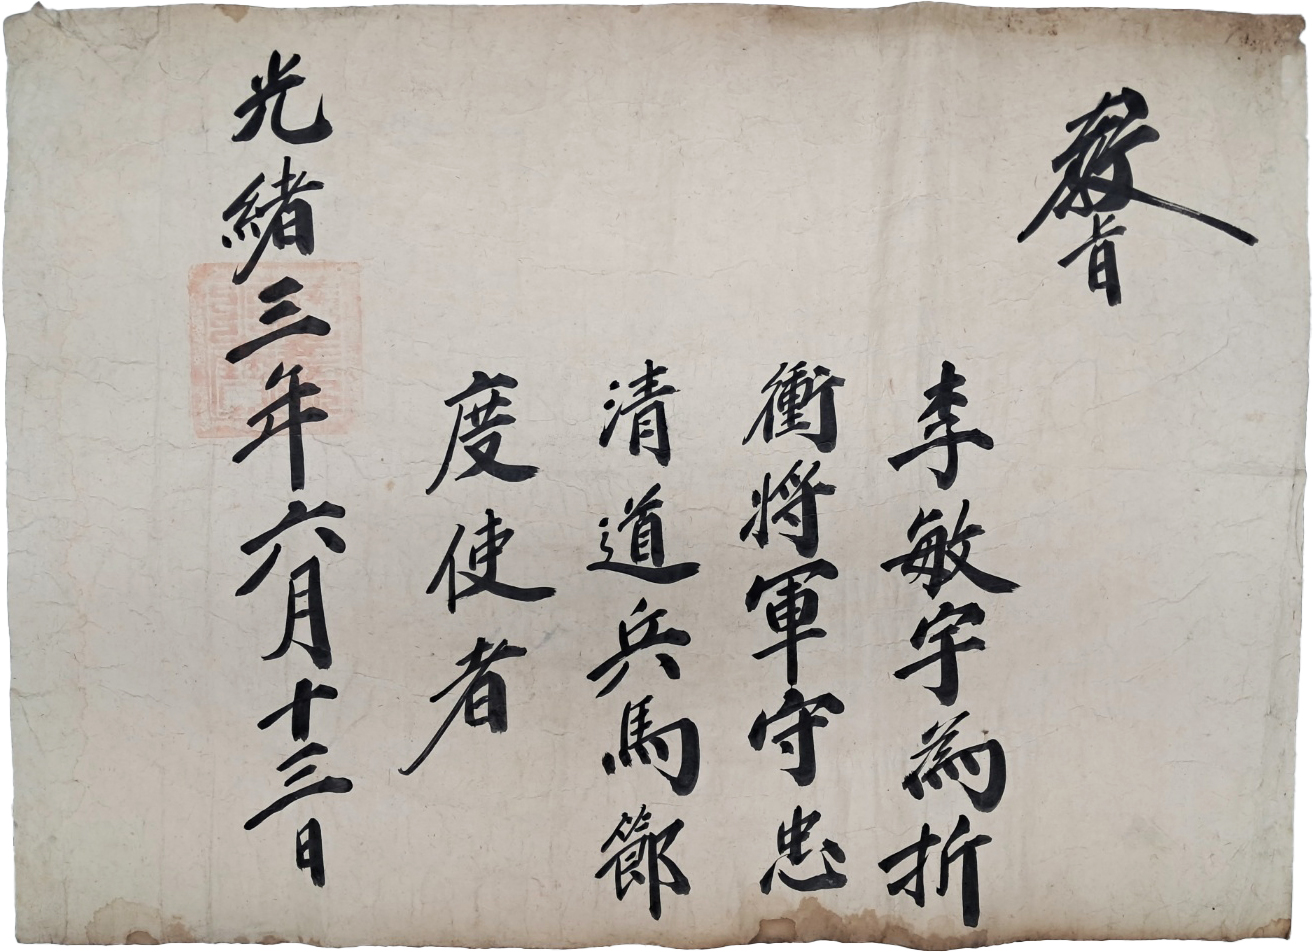 教旨
李敏宇為折
衝將軍守忠
清道兵馬節
度使者
光緖三年六月十三日